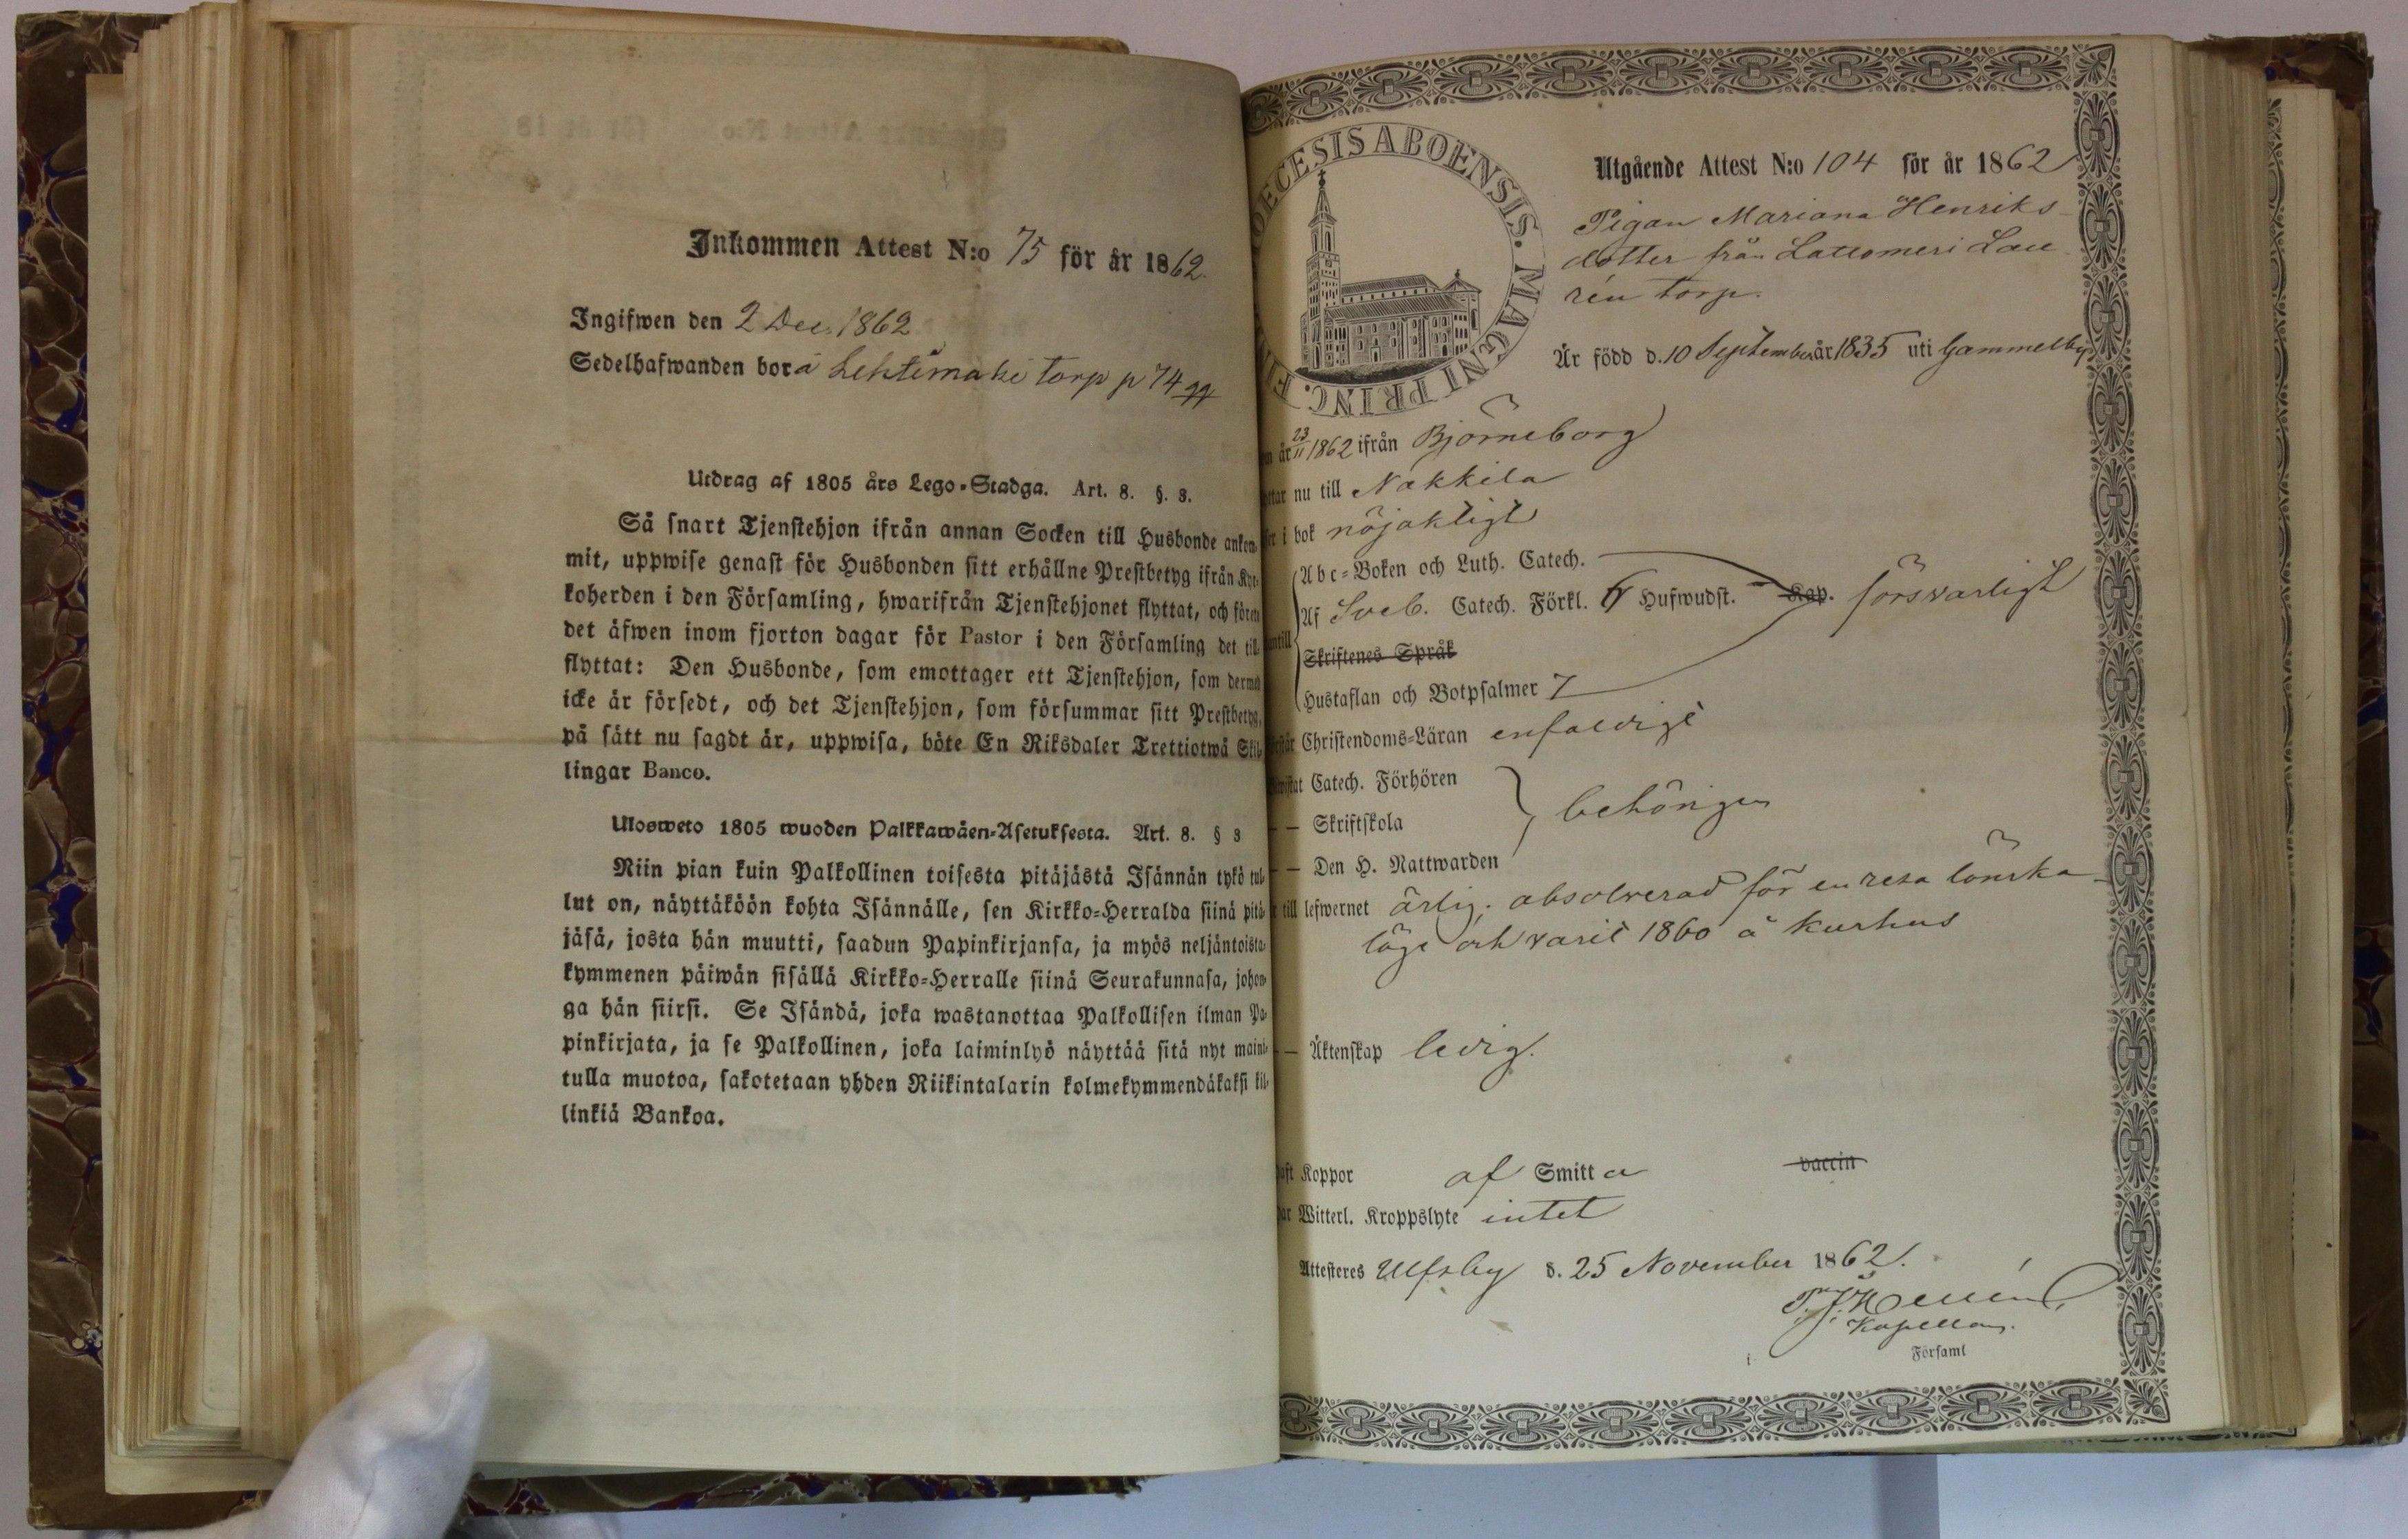 Inkommen Attest N:o 75 för år 1862.
Ingifwen den 2 Dec. 1862
Sedelhafwanden bor å Lehtimäki torp p 74
Utdrag af 1805 års Lego-Stadga. Art. 8. §. 8.
Så snart Tjenstehjon ifrån annan Socken till Husbonde ankom-
mit, uppwise genast för Husbonden sitt erhållne Prestbetyg ifrån Kyr-
koherden i den Församling, hwarifrån Tjenstehjonet flyttat, och förete
det äfwen inom fjorton dagar för Pastor i den Församling det till-
flyttat: Den Husbonde, som emottager ett Tjenstehjon, som dermed
icke är försedt, och det Tjenstehjon, som försummar sitt Prestbetyg,
på sätt nu sagdt är, uppwisa, böte En Riksdaler Trettiotwå Skil-
lingar Banco.
Ulosweto 1805 wuoden Palkkawäen-Asetuksesta. Art. 8. § 8
Niin pian kuin Palkollinen toisesta pitäjästä Isännän tykö tul-
lut on, näyttäköön kohta Isännälle, sen Kirkko-Herralda siinä pitä-
jäsä, josta hän muutti, saadun Papinkirjansa, ja myös neljäntoista-
kymmenen päiwän sisällä Kirkko-Herralle siinä Seurakunnasa, johon-
ga hän siirsi. Se Isändä, joka wastanottaa Palkollisen ilman Pa-
pinkirjata, ja se Palkollinen, joka laiminlyö näyttää sitä nyt maini-
tulla muotoa, sakotetaan yhden Riikintalarin kolmekymmendäkaksi kil-
linkiä Bankoa.
OECESIS ABOENSIS. MAGNI PRINC. FI
Utgående Attest N:o 104 för år 1862
Pigan Mariana Henriks
dotter från Lattomeri Lau
rén torp.
Är född d. 10 September år 1835 uti Gammelby
år 23/11 1862 ifrån Björneborg
nu till Nakkila
i bok nöjaktigt
Abc-Boken och Luth. Catech.
Af Sveb. Catech. Förkl. 6 Hufwudst. Kap. försvarligt
Skriftenes Språk
Hustaflan och Botpsalmer 7
Christendoms-Läran enfaldigt
Catech. Förhören
— — Skriftskola behörigen
— — Den H. Nattwarden
till lefwernet ärlig; absolverad för en resa lönska
läge och varit 1860 å kurhus
— — Äktenskap ledig.
Koppor af Smitta vaccin
Witterl. Kroppslyte intet
Attesteres Ulfsby d. 25 November 1862.
Kapellan.
i Församl